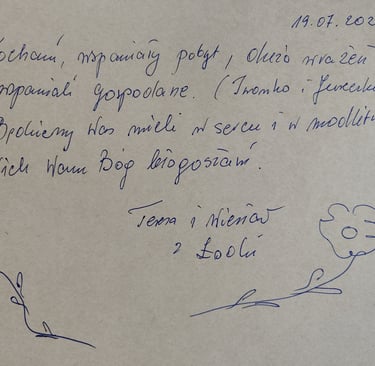 19.07.202
ochani, wspaniały pobyt, dużo wrażeń
wspaniali gospodarze. (Iwonko i Jurecku
Będziemy Was mieli w sercu i w modlitw
iech Wam Bóg błogosławi.
Teresa i Wiesław
z Łodzi